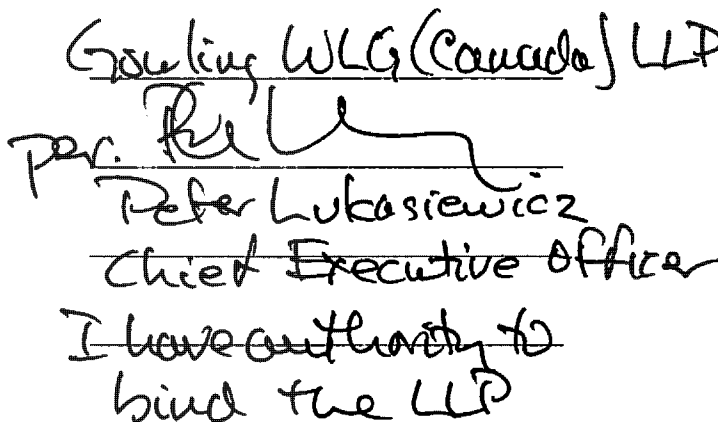 Gowling WLG (Canada) LLP
per.
Peter Lukasiewicz
Chief Executive Officer
I have authority to
bind the LLP